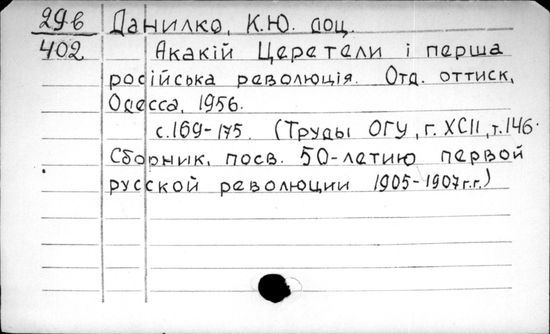 29в Данилко, К.Ю. доц.
402 Акакій Церетели і перша
російська революція. Отд. оттиск,
Одесса, 1956.
с.169-175. (Труды ОГУ, г. XCII, т.146.
Сборник, посв. 50-летию первой
русской революции 1905-1907г.г.)